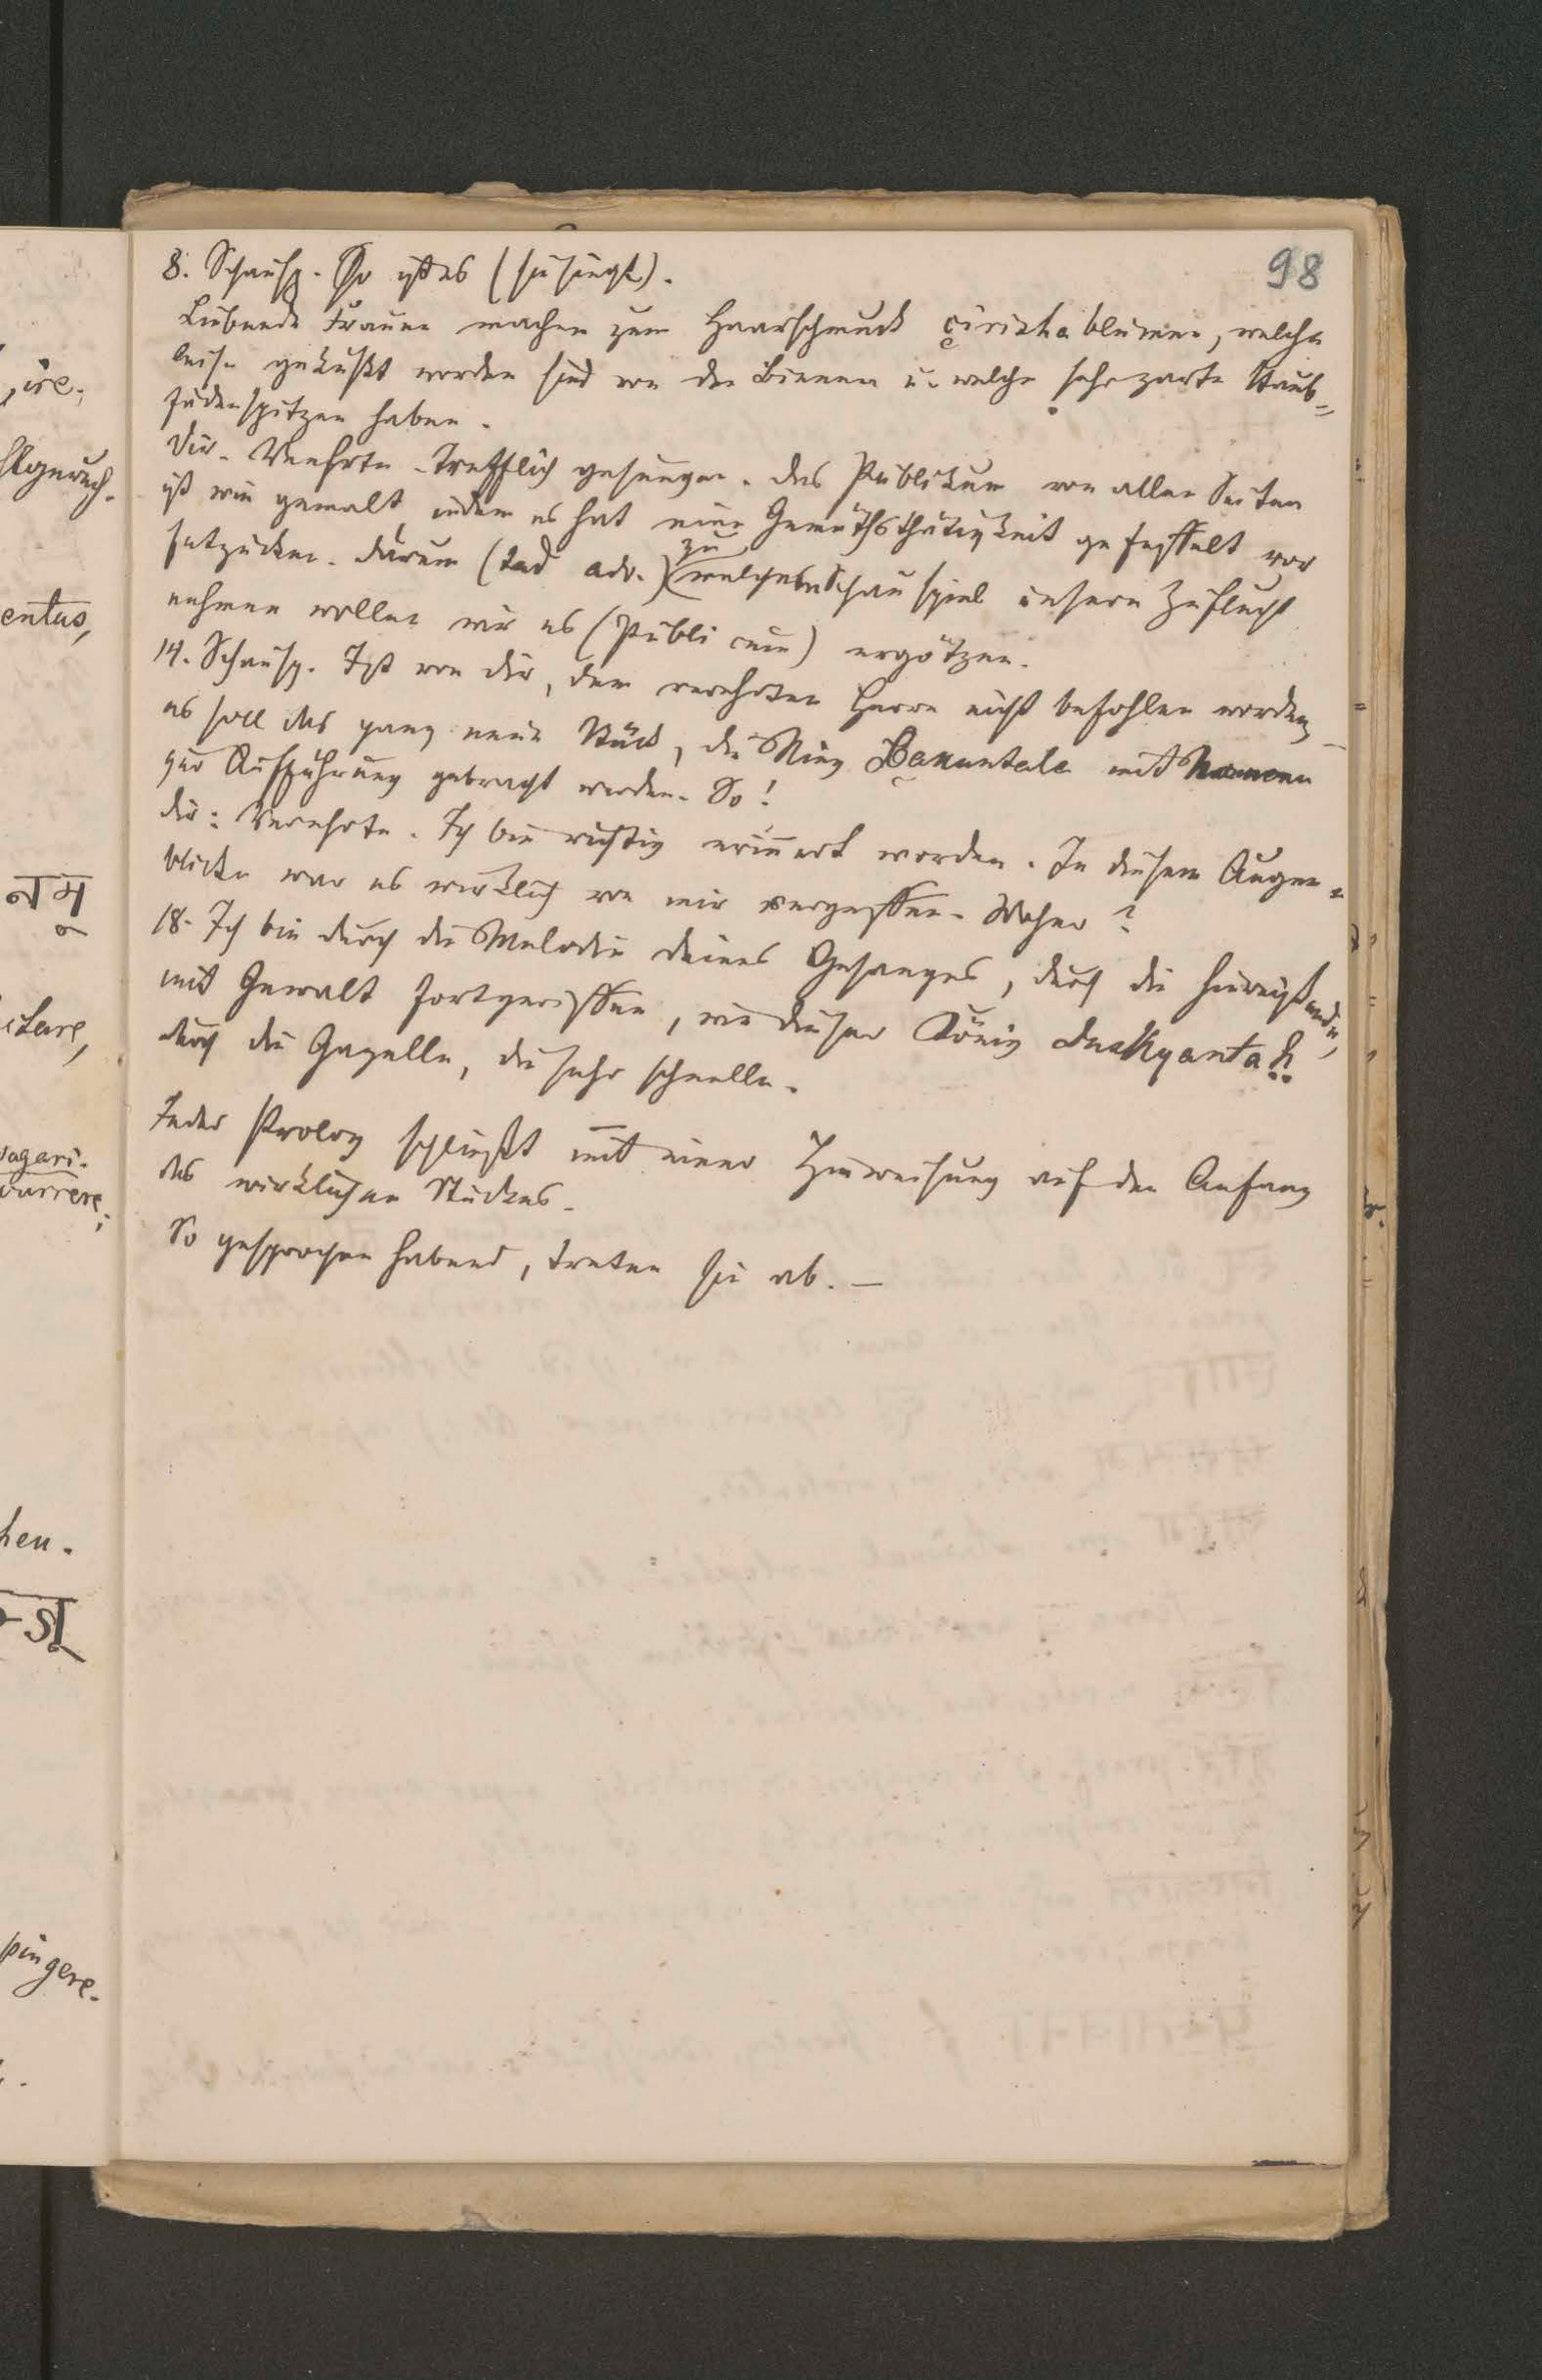 98
8. Schausp. So ist es (sie singt).
Liebende Frauen machen zum Haarschmuck çirisha blumen, welche
leise geküßt worden sind von den Bienen u. welche sehr zarte Staub=
fädenspitzen haben.
Dir. Verehrte. Trefflich gesungen. Das Publikum von allen Seiten
ist wie gemalt, indem es hat eine Gemüthsthätigkeit gefesselt vor
Entzücken. Darum (tad adv.) zu welchem Schauspiel unsere Zuflucht
nehmen wollen wir es (Publicum) ergötzen.
14. Schausp. Ist von dir, dem verehrten Herrn nicht befohlen worden,
es soll das ganz neue Stück, der Ring Çakuntala mit Namen
zur Aufführung gebracht werden. So!
Dir: Verehrte. Ich bin richtig erinnert worden. In diesem Augen=
blicke war es wirklich von mir vergessen. Woher?
18. Ich bin durch die Melodie deines Gesanges, durch die hinreißende,
mit Gewalt fortgerissen, wie dieser König dushyantaḥ
durch die Gazelle, die sehr schnelle.
Jeder Prolog schließt mit einer Hinweisung auf den Anfang
des wirklichen Stückes.
So gesprochen habend, treten sie ab. —
ire;
entus,
नम्
itare,
vagari.
currere;
hen.
pingere.